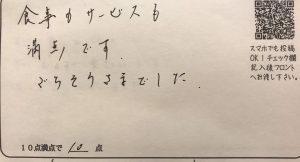 食事もサービスも
満点です。
ごちそうさまでした。
10点満点で 10 点
スマホでも投稿
OK！チェック欄
記入後フロント
へお渡し下さい。